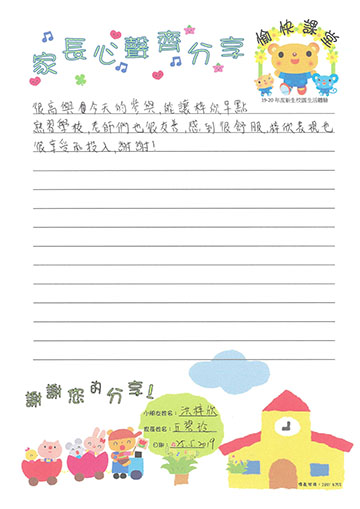 家長心聲齊分享
愉快課堂
19-20 年度新生校園生活體驗
很高興有今天的參與,能讓梓欣早點
熟習學校,老師們也很友善,感到很舒服,梓欣表現也
很享受和投入,謝謝!
謝謝您的分享!
小朋友姓名:
梓欣
家長姓名:
日期:
25.5.2019